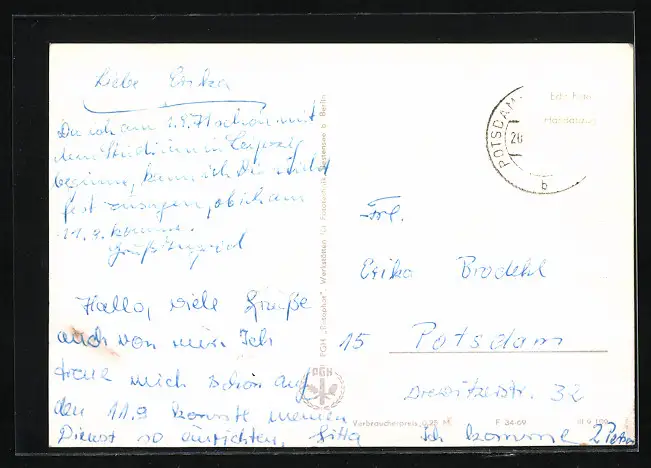 Liebe Erika
Da ich am 1.9.71 schon mit
dem Studium in Leipzig
beginne, kann ich Dir nicht
fest zusagen, ob ich am
11.9. komme.
Gruß Ingrid
Hallo, viele Grüße
auch von mir. Ich
freue mich schon auf
den 11.9 konnte meinen
Dienst so einrichten, Gitta
Ich komme 2 Pers
PGH „Rotophot“ Werkstätten für Fotochemie Bestensee b. Berlin
PGH
POTSDAM
20
b
Echt Foto
Handabzug
Frl.
Erika Brodehl
15 Potsdam
Drewitzerstr. 32
Verbraucherpreis 0,25 M
F 34-69
III 9 109